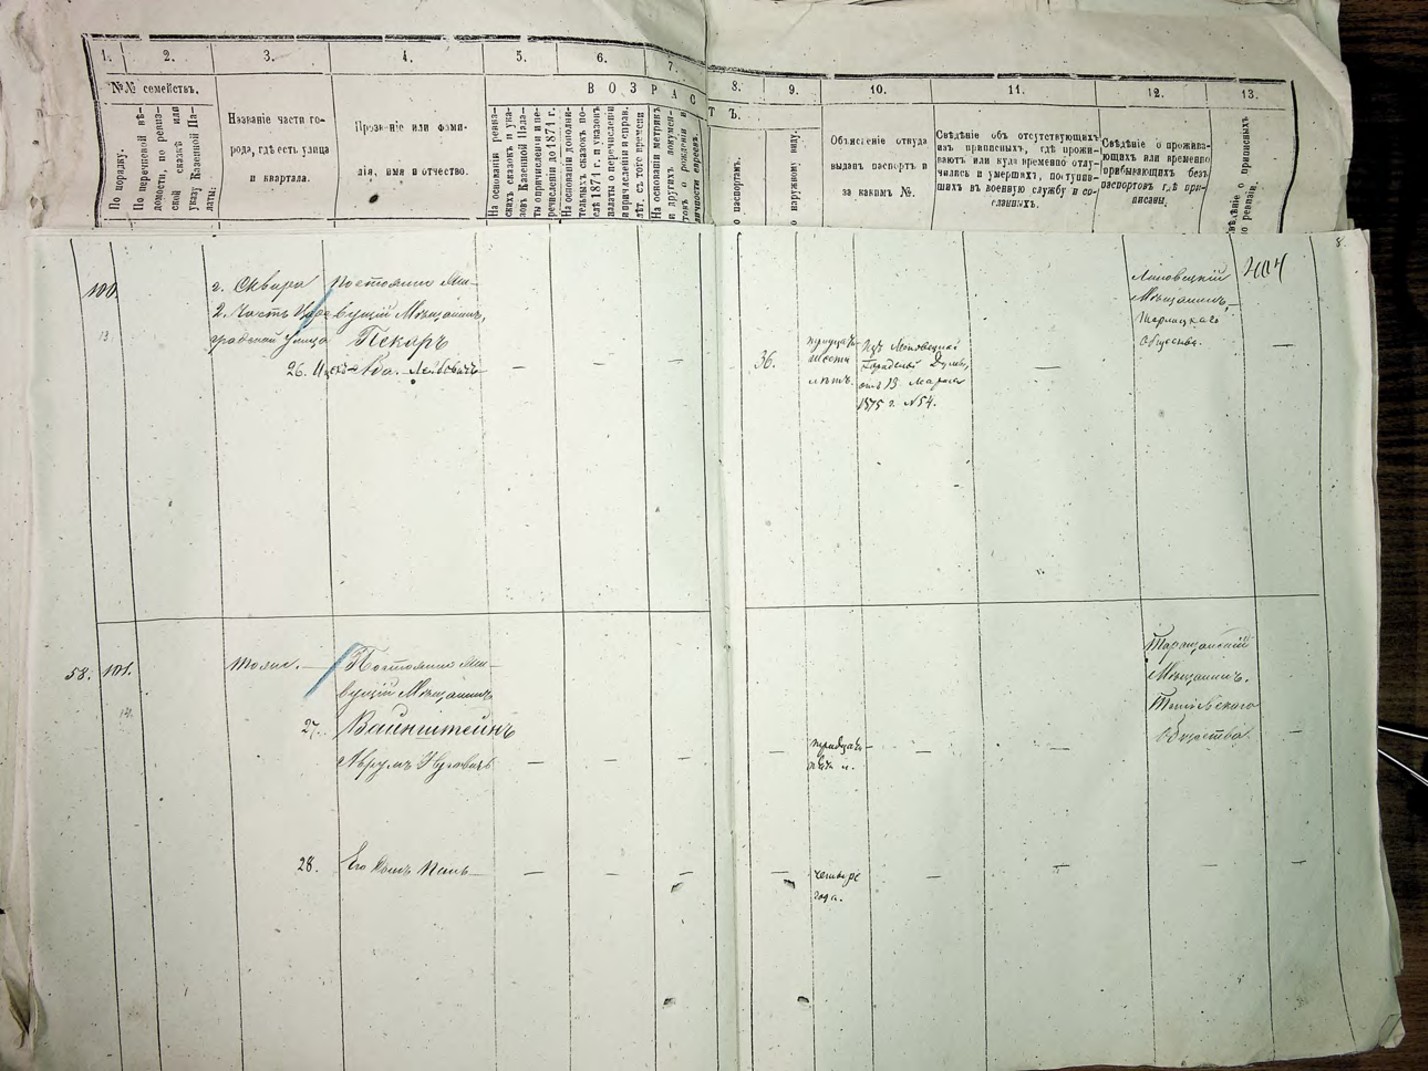 1. 2. 3. 4. 5. 6. 7. 8. 9. 10. 11. 12. 13.
№№ семействъ.
По порядку.
По перечневой вѣ-
домости, по ревиз-
ской сказкѣ или
указу Казенной Па-
латы.
Названіе части го-
рода, гдѣ есть улица
и квартала.
Прозваніе или фами-
лія, имя и отчество.
ВОЗРАСТЪ.
На основаніи ревиз-
скихъ сказокъ и ука-
зовъ Казенной Пала-
ты о причисленіи и пе-
речисленіи до 1871 г.
На основаніи дополни-
тельныхъ сказокъ по-
слѣ 1871 г. и указовъ
палаты о перечисленіи
и причисленіи и справ.
лѣт. съ того времени
На основаніи метрикъ
и другихъ докумен-
товъ о рожденіи и
личности евреевъ.
о паспортамъ.
о наружному виду.
Объясненіе откуда
выданъ паспортъ и
за какимъ №.
Свѣдѣніе объ отсутствующихъ
изъ приписныхъ, гдѣ прожи-
ваютъ или куда временно отлу-
чились и умершихъ, поступив-
шихъ въ военную службу и со-
сланныхъ.
Свѣдѣніе о прожива-
ющихъ или временно
прибывающихъ безъ
паспортовъ гдѣ при-
писаны.
вѣдѣніе о приписныхъ
по ревизіи.
8.
100.
13.
г. Сквира
2. часть
улица
Постоянно жи-
вущій Мѣщанинъ,
Пекаръ
26. Лейбовичъ
— — —
36.
тридцать
шесть
лѣтъ.
Изъ Липовецкой
Городской Думы,
отъ 13 Марта
1875 г. №54.
—
Липовецкій
Мѣщанинъ,
Общества.
—
58. 101.
14.
тоже. —
Постоянно жи-
вущій Мѣщанинъ
27. Вайнштейнъ
Аврумъ
— — — —
тридцать
—
—
Таращанскій
Мѣщанинъ.
Общества.
—
28. Его сынъ
— — — —
четыре
года.
— — — —